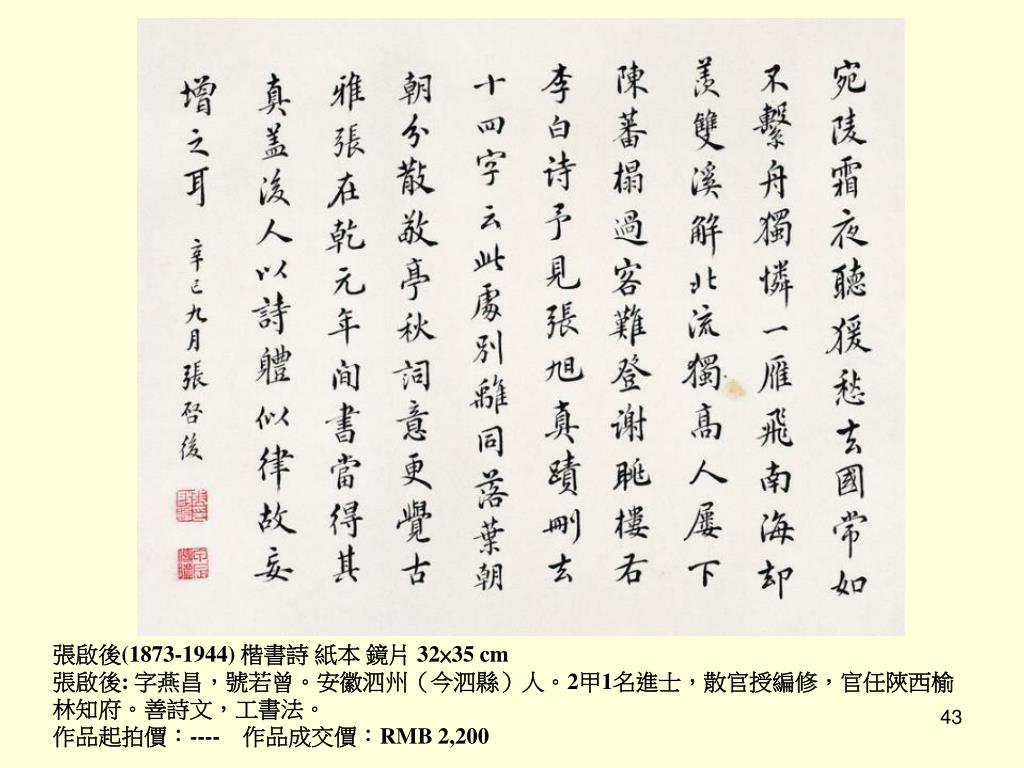 宛陵霜夜聽猨愁去國常如
不繫舟獨憐一雁飛南海却
羨雙溪解北流獨高人屢下
陳蕃榻過客難登謝眺樓右
李白诗予見張旭真蹟刪去
十四字云此處別離同落葉朝
朝分散敬亭秋詞意更覺古
雅張在乾元年间書當得其
真盖後人以詩體似律故妄
增之耳
辛巳九月張啓後
張啟後(1873-1944) 楷書詩 紙本 鏡片 32×35 cm
張啟後: 字燕昌，號若曾。安徽泗州（今泗縣）人。2甲1名進士，散官授編修，官任陝西榆
林知府。善詩文，工書法。
作品起拍價：---- 作品成交價：RMB 2,200
43